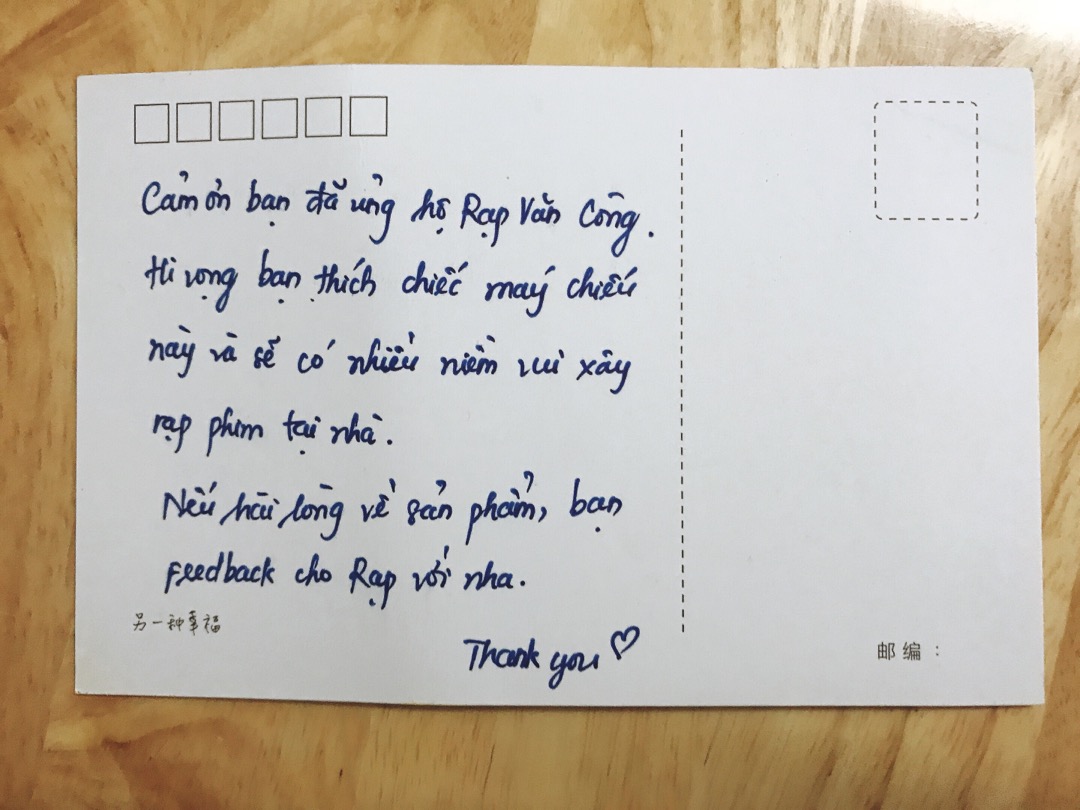 Cảm ơn bạn đã ủng hộ Rạp Văn Công.
Hi vọng bạn thích chiếc máy chiếu
này và sẽ có nhiều niềm vui xây
rạp phim tại nhà.
Nếu hài lòng về sản phẩm, bạn
feedback cho Rạp với nha.
Thank you ♡
另一种幸福
邮编：